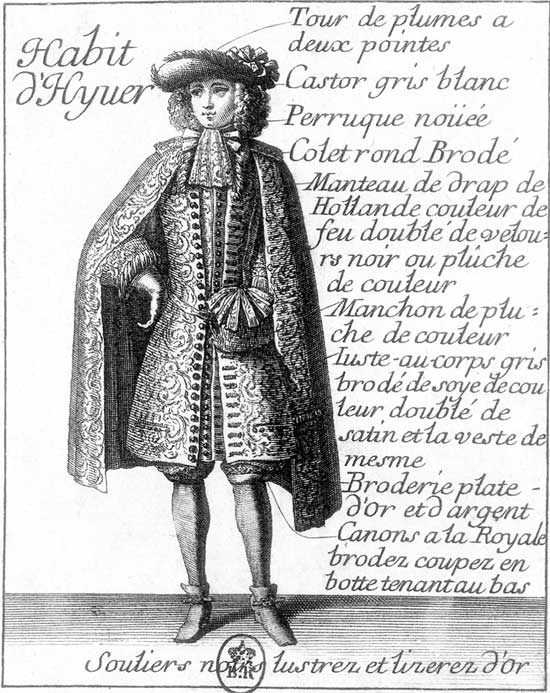 Habit
d'Hyuer
Tour de plumes a
deux pointes
Castor gris blanc
Perruque noüéé
Colet rond Brodé
Manteau de drap de
Hollande couleur de
feu doublé de velou-
rs noir ou plûche
de couleur
Manchon de plu-
che de couleur
Iuste-au-corps gris
brodé de soye de cou
leur doublé de
satin et la veste de
mesme
Broderie plate -
d'Or et d'argent
Canons a la Royale
brodez coupez en
botte tenant au bas
Souliers noirs lustrez et lizerez d'Or
B.R